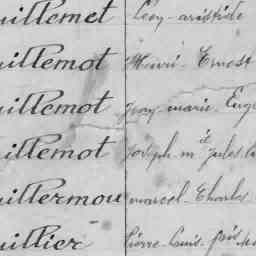 uillemet Léon-aristide
uillemot Henri-Ernest
uillemot Jean-marie-Eug
uillemot Joseph-m^ie Jules
uillermou marcel-Charles
uillier Pierre-Louis-fois